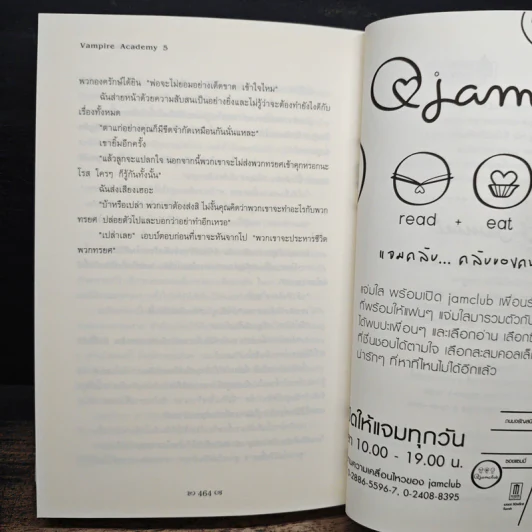 Vampire Academy 5
พวกองครักษ์ได้ยิน "พ่อจะไม่ยอมอย่างเด็ดขาด เข้าใจไหม"
ฉันส่ายหน้าด้วยความสับสนเป็นอย่างยิ่งและไม่รู้ว่าจะต้องทำยังไงดีกับ
เรื่องทั้งหมด
"ตาแก่อย่างคุณก็มีขีดจำกัดเหมือนกันนั่นแหละ"
เขายิ้มอีกครั้ง
"แล้วลูกจะแปลกใจ นอกจากนี้พวกเขาจะไม่ส่งพวกทรยศเข้าคุกหรอกนะ
โรส ใครๆ ก็รู้กันทั้งนั้น"
ฉันส่งเสียงเฮอะ
"บ้าหรือเปล่า พวกเขาต้องส่งสิ ไม่งั้นคุณคิดว่าพวกเขาจะทำอะไรกับพวก
ทรยศ ปล่อยตัวไปและบอกว่าอย่าทำอีกเหรอ"
"เปล่าเลย" เอบบ์ตอบก่อนที่เขาจะหันจากไป "พวกเขาจะประหารชีวิต
พวกทรยศ"
464
jam
read + eat
แจมคลับ... คลับของคน
แจ่มใส พร้อมเปิด jamclub เพื่อน
ที่พร้อมให้แฟนๆ แจ่มใสมารวมตัวกัน
ได้พบปะเพื่อนๆ และเลือกอ่าน เลือก
ที่ชื่นชอบได้ตามใจ เลือกสะสมคอลเล็
น่ารักๆ ที่หาที่ไหนไม่ได้อีกแล้ว
ให้แจมทุกวัน
10.00 - 19.00 น.
ความเคลื่อนไหวของ jamclub
-2886-5596-7, 0-2408-8395
jamclub